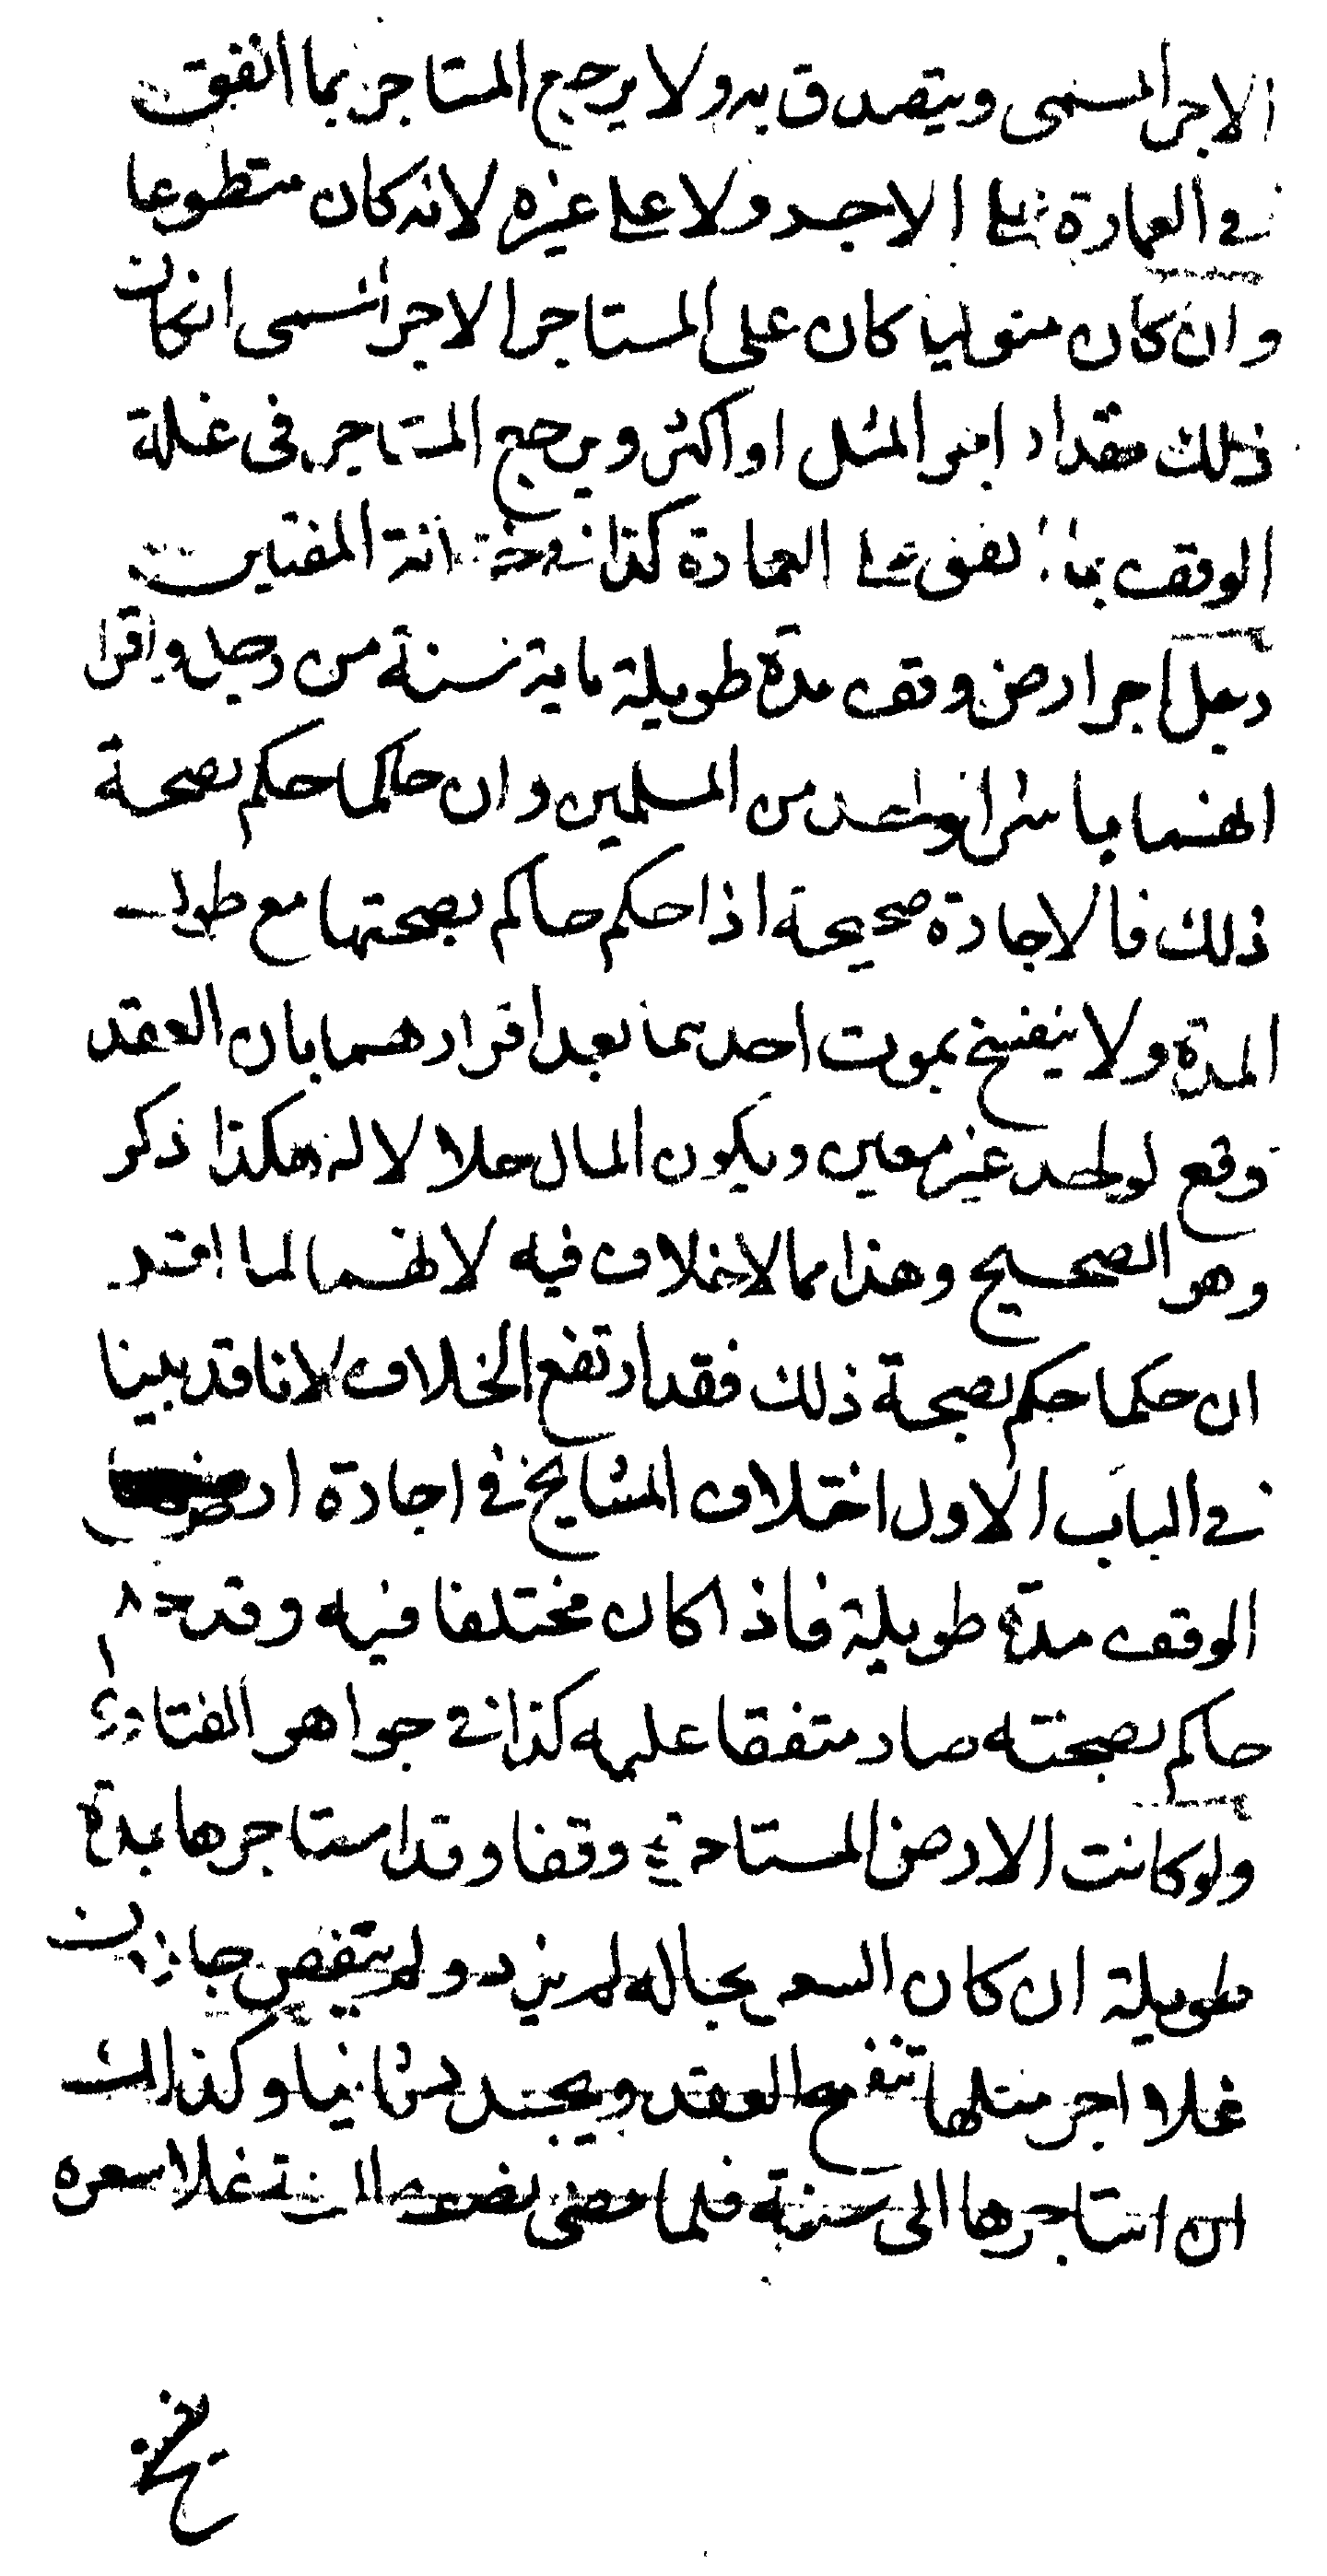 الاجر المسمى ويتصدق به ولا يرجع المستاجر بما انفق
في العمارة على الاجر ولا على غيره لانه كان متطوعا
وان كان متوليا كان على المستاجر الاجر المسمى ان كان
ذلك مقدار اجر المثل او اكثر ويرجع المستاجر في غلة
الوقف بما انفق على العمارة كذا في خزانة المفتين
رجل اجر ارض وقف مدة طويلة ماية سنة من رجل واقرا
انهما باشرا لواحد من المسلمين وان حاكما حكم بصحة
ذلك فالاجارة صحيحة اذا حكم حاكم بصحتها مع طول
المدة ولا ينفسخ بموت احدهما بعد اقرارهما بان العقد
وقع لواحد غير معين ويكون المال حلالا له هكذا ذكر
وهو الصحيح وهذا مما لا خلاف فيه لانهما لما اقرا
ان حكما حكم بصحة ذلك فقد ارتفع الخلاف لانا قد بينا
في الباب الاول اختلاف المشايخ في اجارة ارض
الوقف مدة طويلة فاذا كان مختلفا فيه وقد حكم
حاكم بصحته صار متفقا عليه كذا في جواهر الفتاوى
ولو كانت الارض المستاجرة وقفا وقد استاجرها مدة
طويلة ان كان السعر بحاله لم يزد ولم ينقص جاز وان
غلا اجر مثلها تنفسخ العقد ويجدد ثانيا وكذلك
ان استاجرها الى سنة فلما مضى نصف السنة غلا سعره